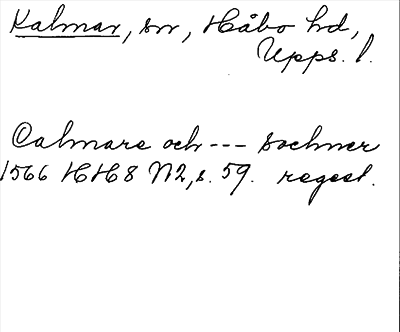 Kalmar, sn, Håbo hd,
Upps. l.
Calmare och --- sochner
1566 HH8 N2, s. 59. regest.